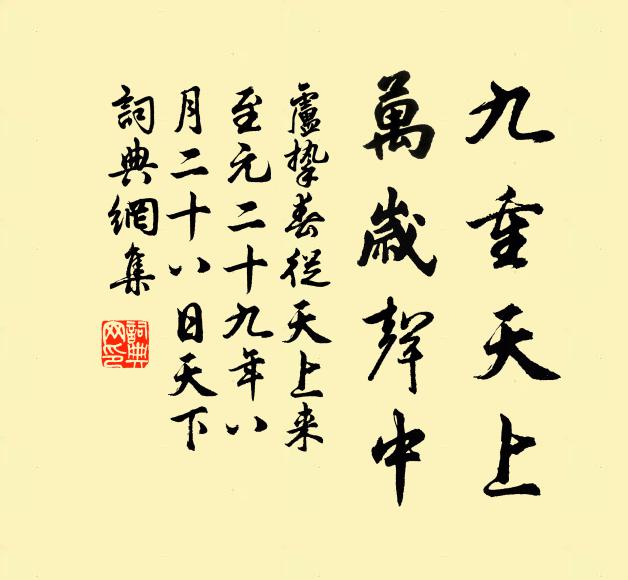 九重天上
萬歲聲中
盧摯春從天上来
至元二十九年八
月二十八日天下
詞典網集
詞典
网印